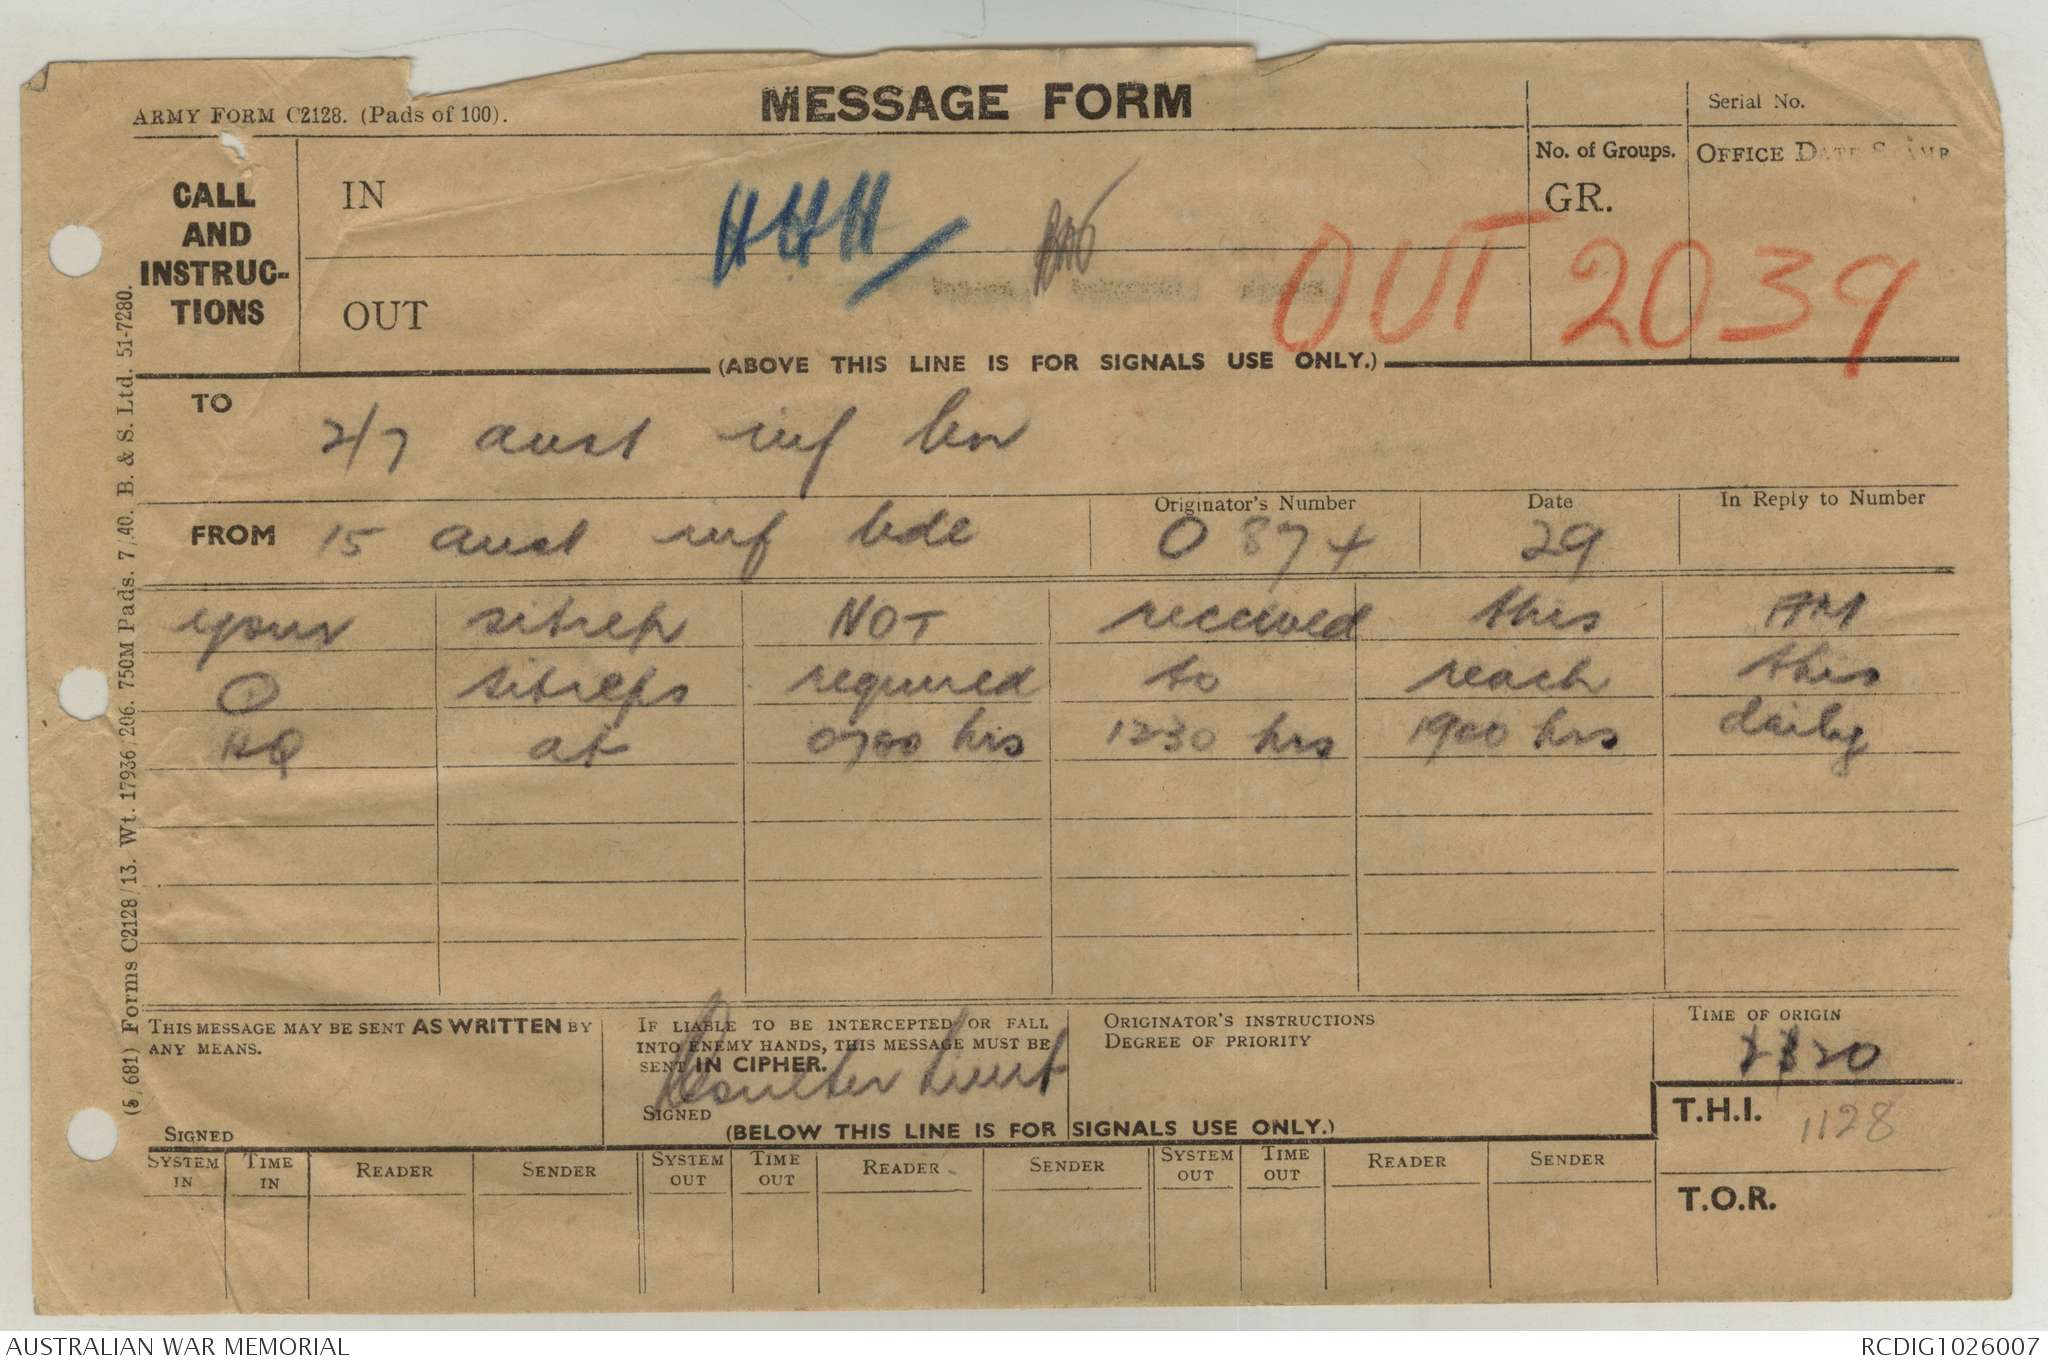 ARMY FORM C2128. (Pads of 100).
MESSAGE FORM
Serial No.
CALL
AND
INSTRUC-
TIONS
IN
OUT
HHH
No. of Groups.
GR.
OFFICE DATE STAMP
OUT 2039
(ABOVE THIS LINE IS FOR SIGNALS USE ONLY.)
TO 2/7 aust inf bn
FROM 15 aust inf bde
Originator's Number
0 874
Date
29
In Reply to Number
your sitrep NOT received this AM
O sitreps required to reach this
HQ at 0700 hrs 1230 hrs 1900 hrs daily
THIS MESSAGE MAY BE SENT AS WRITTEN BY
ANY MEANS.
SIGNED
IF LIABLE TO BE INTERCEPTED OR FALL
INTO ENEMY HANDS, THIS MESSAGE MUST BE
SENT IN CIPHER.
Coulter Lieut
SIGNED
ORIGINATOR'S INSTRUCTIONS
DEGREE OF PRIORITY
TIME OF ORIGIN
T.H.I. 1128
T.O.R.
(BELOW THIS LINE IS FOR SIGNALS USE ONLY.)
SYSTEM IN TIME IN READER SENDER SYSTEM OUT TIME OUT READER SENDER SYSTEM OUT TIME OUT READER SENDER
(5/681) Forms C2128/13. Wt. 17936/206. 750M Pads. 7/40. B. & S. Ltd. 51-7280.
AUSTRALIAN WAR MEMORIAL
RCDIG1026007